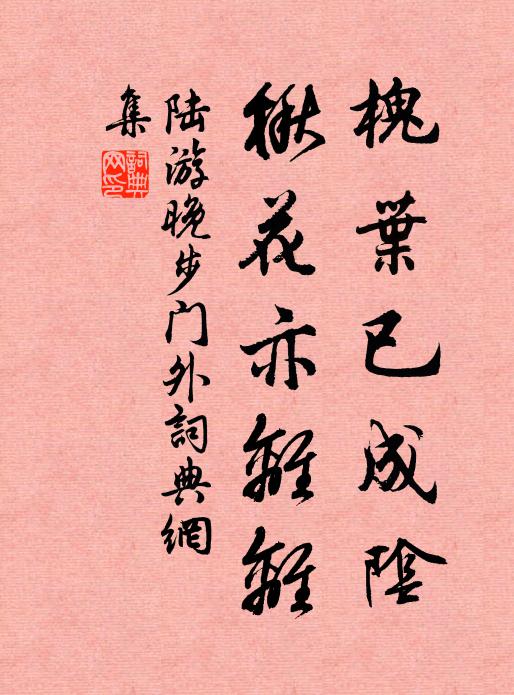 槐葉已成陰
楸花亦離離
陆游晚步门外詞典網
集
詞典網印